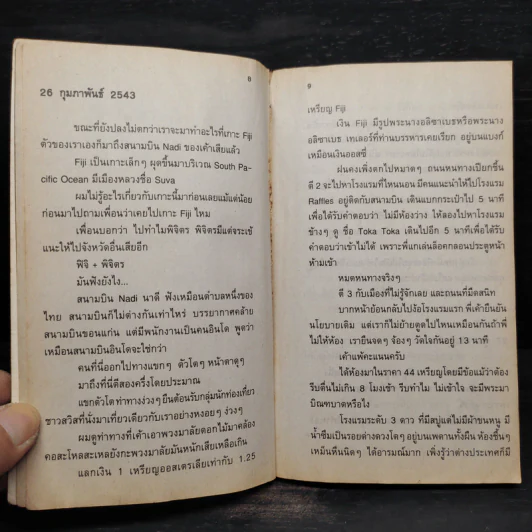 8
26 กุมภาพันธ์ 2543
ขณะที่ยังปลงไม่ตกว่าเราจะมาทำอะไรที่เกาะ Fiji
ตัวของเราเองก็มาถึงสนามบิน Nadi ของเค้าเสียแล้ว
Fiji เป็นเกาะเล็กๆ ผุดขึ้นมาบริเวณ South Pa-
cific Ocean มีเมืองหลวงชื่อ Suva
ผมไม่รู้อะไรเกี่ยวกับเกาะนี้มาก่อนเลยแม้แต่น้อย
ก่อนมาไปถามเพื่อนว่าเคยไปเกาะ Fiji ไหม
เพื่อนบอกว่า ไปทำไมพิจิตร พิจิตรมีแต่จระเข้
แนะให้ไปจังหวัดอื่นเสียอีก
ฟิจิ + พิจิตร
มันฟังยังไง...
สนามบิน Nadi นาดี ฟังเหมือนตำบลหนึ่งของ
ไทย สนามบินก็ไม่ต่างกันเท่าไหร่ บรรยากาศคล้าย
สนามบินขอนแก่น แต่มีพนักงานเป็นคนอินโด พูดว่า
เหมือนสนามบินอินโดจะใช่กว่า
คนที่นี่ออกไปทางแขกๆ ตัวโตๆ หน้าตาดุๆ
มาถึงที่นี่ตีสองครึ่งโดยประมาณ
แขกตัวโตท่าทางง่วงๆ ยืนต้อนรับกลุ่มนักท่องเที่ยว
ชาวสวิสที่นั่งมาเที่ยวเดียวกับเราอย่างหงอยๆ ง่วงๆ
ผมดูท่าทางที่เค้าเอาพวงมาลัยดอกไม้มาคล้อง
คอสะโหลสะเหลยังกะพวงมาลัยมันหนักเสียเหลือเกิน
แลกเงิน 1 เหรียญออสเตรเลียเท่ากับ 1.25
9
เหรียญ Fiji
เงิน Fiji มีรูปพระนางอลิซาเบธหรือพระนาง
อลิซาเบธ เทเลอร์ที่ท่านบรรหารเคยเรียก อยู่บนแบงก์
เหมือนเงินออสซี่
ฝนคงเพิ่งตกไปหมาดๆ ถนนหนทางเปียกชื้น
ตี 2 จะไปหาโรงแรมที่ไหนนอน มีคนแนะนำให้ไปโรงแรม
Raffles อยู่ติดกับสนามบิน เดินแบกกระเป๋าไป 5 นาที
เพื่อได้รับคำตอบว่า ไม่มีห้องว่าง ให้ลองไปหาโรงแรม
ข้างๆ ดู ชื่อ Toka Toka เดินไปอีก 5 นาที เพื่อได้รับ
คำตอบว่าเข้าไม่ได้ เพราะพี่แกเล่นล็อกกลอนประตูหน้า
ห้ามเข้า
หมดหนทางจริงๆ
ตี 3 กับเมืองที่ไม่รู้จักเลย และถนนที่มืดสนิท
บากหน้าย้อนกลับไปง้อโรงแรมแรก พี่เค้ายืนยัน
นโยบายเดิม แต่เราก็ไม่ย้ายตูดไปไหนเหมือนกันถ้าพี่
ไม่ให้ห้อง เรายืนจดๆ จ้องๆ วัดใจกันอยู่ 13 นาที
เค้าแพ้คะแนนครับ
ได้ห้องมาในราคา 44 เหรียญโดยมีข้อแม้ว่าต้อง
รีบตื่นไม่เกิน 8 โมงเช้า รีบทำไม ไม่เข้าใจ จะมีพระมา
บิณฑบาตหรือไง
โรงแรมระดับ 3 ดาว ที่มีสบู่แต่ไม่มีผ้าขนหนู มี
น้ำซึมเป็นรอยด่างดวงโตๆ อยู่บนเพดานทั้งผืน ห้องชื้นๆ
เหม็นหืนนิดๆ ได้อารมณ์มาก เพิ่งรู้ว่าต่างประเทศก็มี